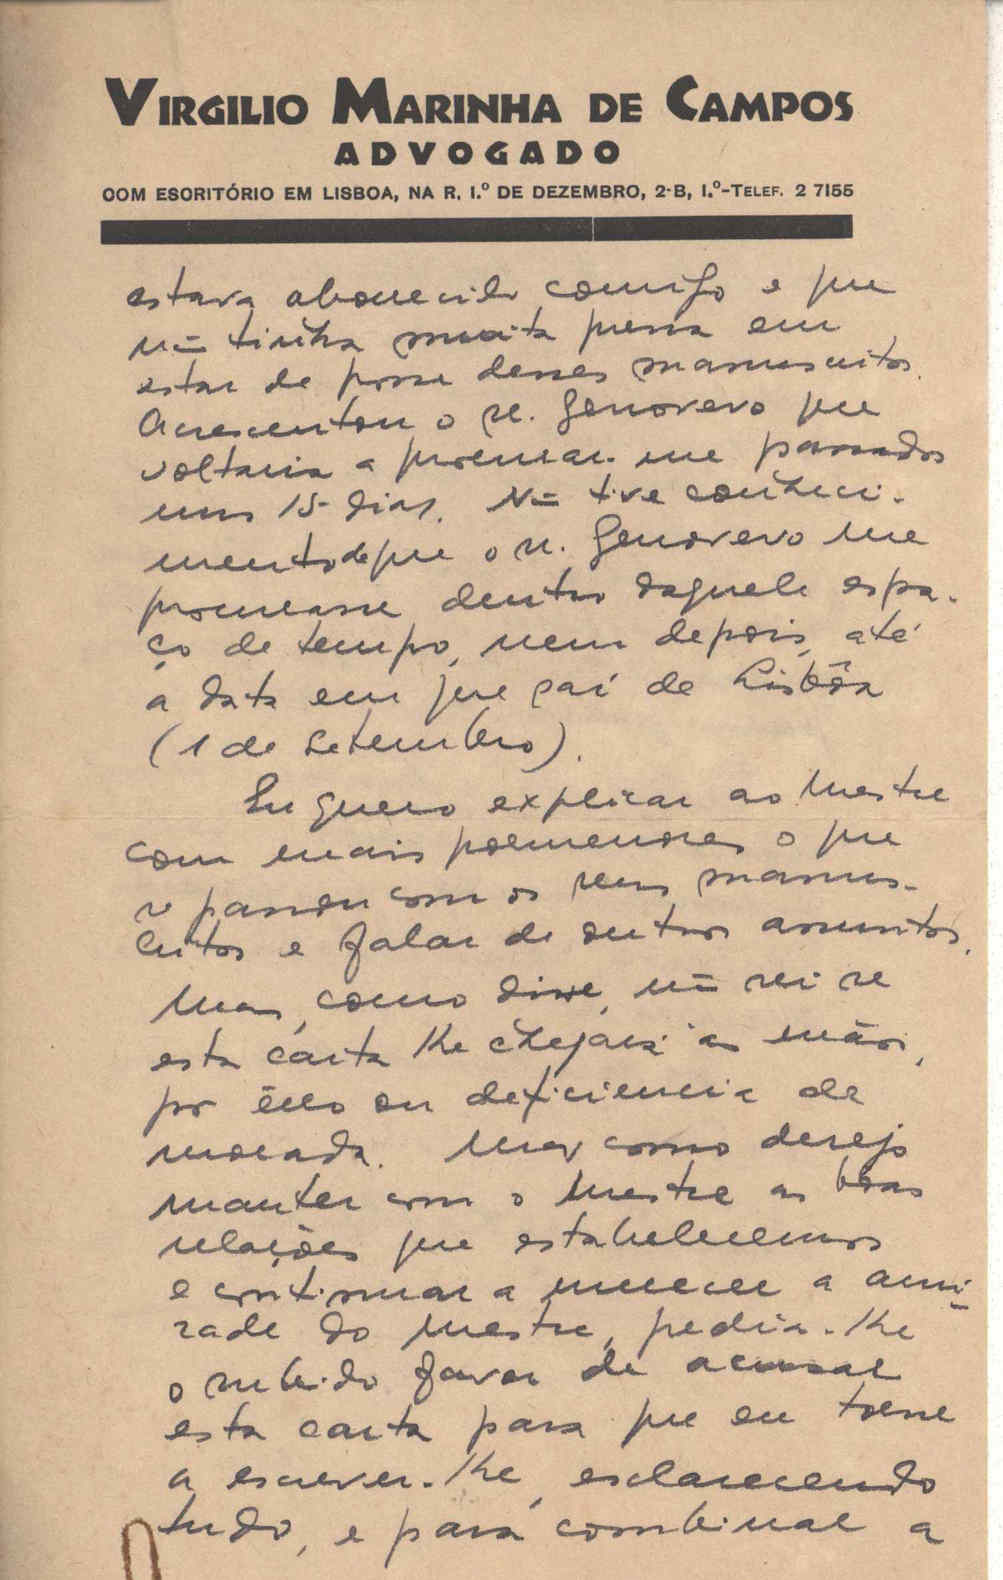 VIRGILIO MARINHA DE CAMPOS
ADVOGADO
COM ESCRITÓRIO EM LISBOA, NA R. 1.º DE DEZEMBRO, 2-B, 1.º-TELEF. 2 7155
estava aborrecido comigo e que
não tinha muita pressa em
estar de posse desses manuscritos.
Acrescentou o sr. Genovevo que
voltaria a procurar-me passados
uns 15 dias. Não tive conheci-
mento de que o sr. Genovevo me
procurasse dentro daquele espa-
ço de tempo, nem depois, até
a data em que saí de Lisbôa
(1 de Setembro).
Eu quero explicar ao Mestre
com mais pormenores o que
se passou com os seus manus-
critos e falar de outros assuntos.
Mas, como disse, não sei se
esta carta lhe chegará às mãos,
por êrro ou deficiencia de
morada. Mas como desejo
manter com o Mestre as bôas
relações que estabelecemos
e continuar a merecer a ami-
zade do Mestre, pedia-lhe
o subido favor de acusar
esta carta para que eu torne
a escrever-lhe, esclarecendo
tudo, e para combinar a